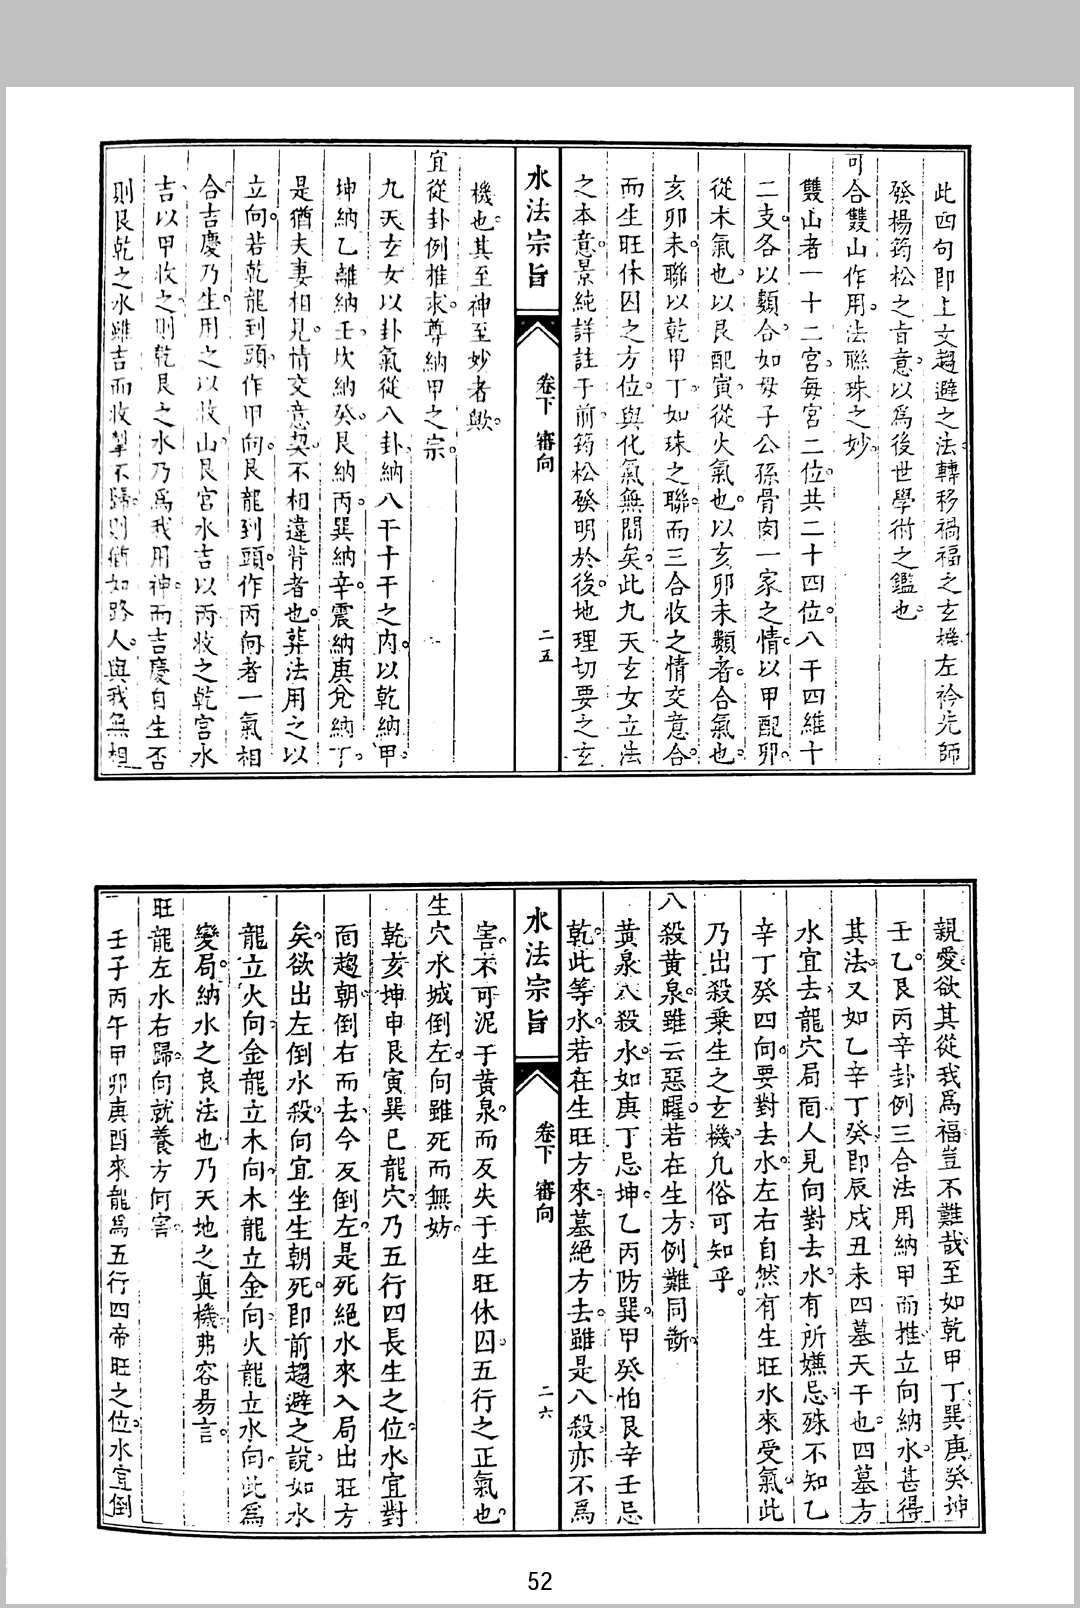 此四句即上文趨避之法轉移禍福之玄機左衿先師
發楊筠松之旨意以為後世學術之鑑也
可合雙山作用法聯珠之妙
雙山者一十二宮每宮二位共二十四位八干四維十
二支各以類合如母子公孫骨肉一家之情以甲配卯
從木氣也以艮配寅從火氣也以亥卯未類者合氣也
亥卯未聯以乾甲丁如珠之聯而三合收之情交意合
而生旺休囚之方位與化氣無間矣此九天玄女立法
之本意景純詳註于前筠松發明於後地理切要之玄
水法宗旨
卷下 審向
二五
機也其至神至妙者歟
宜從卦例推求尊納甲之宗
九天玄女以卦氣從八卦納八干十干之內以乾納甲
坤納乙離納壬坎納癸艮納丙巽納辛震納庚兌納丁
是猶夫妻相見情交意契不相違背者也葬法用之以
立向若乾龍到頭作甲向艮龍到頭作丙向者一氣相
合吉慶乃生用之以收山艮宮水吉以丙收之乾宮水
吉以甲收之則乾艮之水乃為我用神而吉慶自生否
則艮乾之水雖吉而收拏不歸則猶如路人與我無相
親愛欲其從我為福豈不難哉至如乾甲丁巽庚癸坤
壬乙艮丙辛卦例三合法用納甲而推立向納水甚得
其法又如乙辛丁癸即辰戌丑未四墓天干也四墓方
水宜去龍穴局面人見向對去水有所嫌忌殊不知乙
辛丁癸四向要對去水左右自然有生旺水來受氣此
乃出殺乗生之玄機凢俗可知乎
八殺黃泉雖云惡曜若在生方例難同斷
黃泉八殺水如庚丁忌坤乙丙防巽甲癸怕艮辛壬忌
乾此等水若在生旺方來墓絕方去雖是八殺亦不為
水法宗旨
卷下 審向
二六
害不可泥于黃泉而反失于生旺休囚五行之正氣也
生穴水城倒左向雖死而無妨
乾亥坤申艮寅巽巳龍穴乃五行四長生之位水宜對
面趨朝倒右而去今反倒左是死絕水來入局出旺方
矣欲出左倒水殺向宜坐生朝死即前趨避之說如水
龍立火向金龍立木向木龍立金向火龍立水向此為
變局納水之良法也乃天地之真機弗容易言
旺龍左水右歸向就養方何害
壬子丙午甲卯庚酉來龍為五行四帝旺之位水宜倒
52